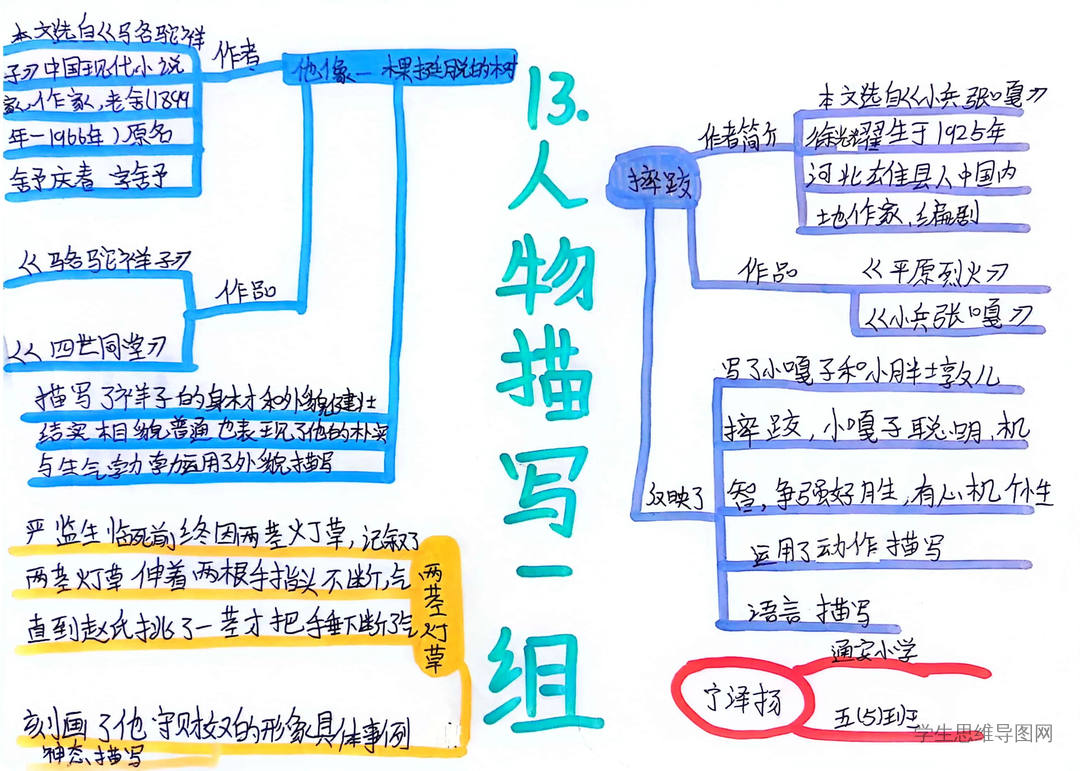 13.
人物描写一组
他像一棵挺脱的树
作者
本文选自《骆驼祥
子》中国现代小说
家,作家,老舍(1899
年-1966年)原名
舒庆春 字舍予
作品
《骆驼祥子》
《四世同堂》
描写了祥子的身材和外貌健壮
结实相貌普通也表现了他的朴实
与生气勃勃运用了外貌描写
两茎灯草
严监生临死前终因两茎灯草,记叙了
两茎灯草伸着两根手指头不断气
直到赵氏挑了一茎才把手垂下断了气
刻画了他守财奴的形象具体事例
神态描写
摔跤
作者简介
本文选自《小兵张嘎》
徐光耀生于1925年
河北雄县人中国内
土地作家,编剧
作品
《平原烈火》
《小兵张嘎》
反映了
写了小嘎子和小胖墩儿
摔跤,小嘎子聪明、机
智,争强好胜,有心机个性
运用了动作描写
语言描写
宁泽扬
通安小学
五(5)班
学生思维导图网